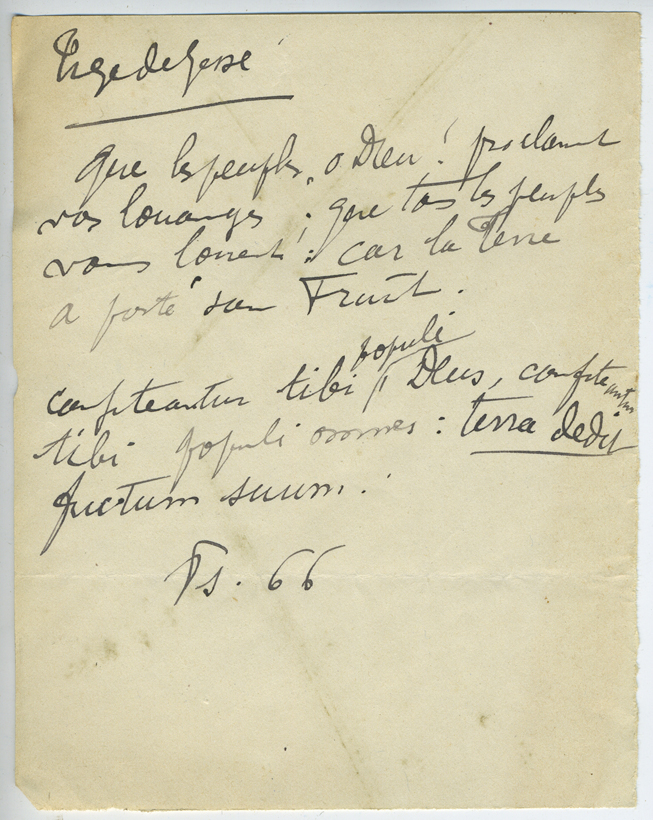 Tige de Jessé
Que les peuples, o Dieu ! proclament
vos louanges ; que tous les peuples
vous louent : car la Terre
a porté son Fruit.
populi
confiteantur tibi Deus, confiteantur
tibi populi omnes : terra dedit
fructum suum.
Ps. 66